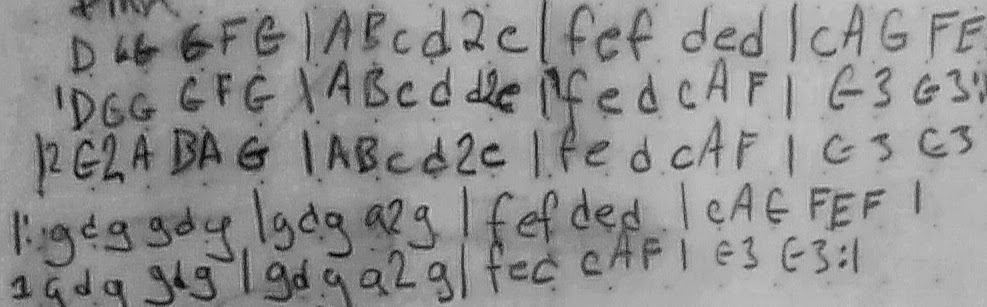 D GG GFG | ABc d2c | fef ded | cAG FE
1 DGG GFG | ABc d2e | fed cAF | G3 G3:|
|2 G2A BAG | ABc d2c | fed cAF | G3 G3
|: gdg gdg | gdg a2g | fef ded | cAG FEF |
1 gdg gdg | gdg a2g | fec cAF | G3 G3:|